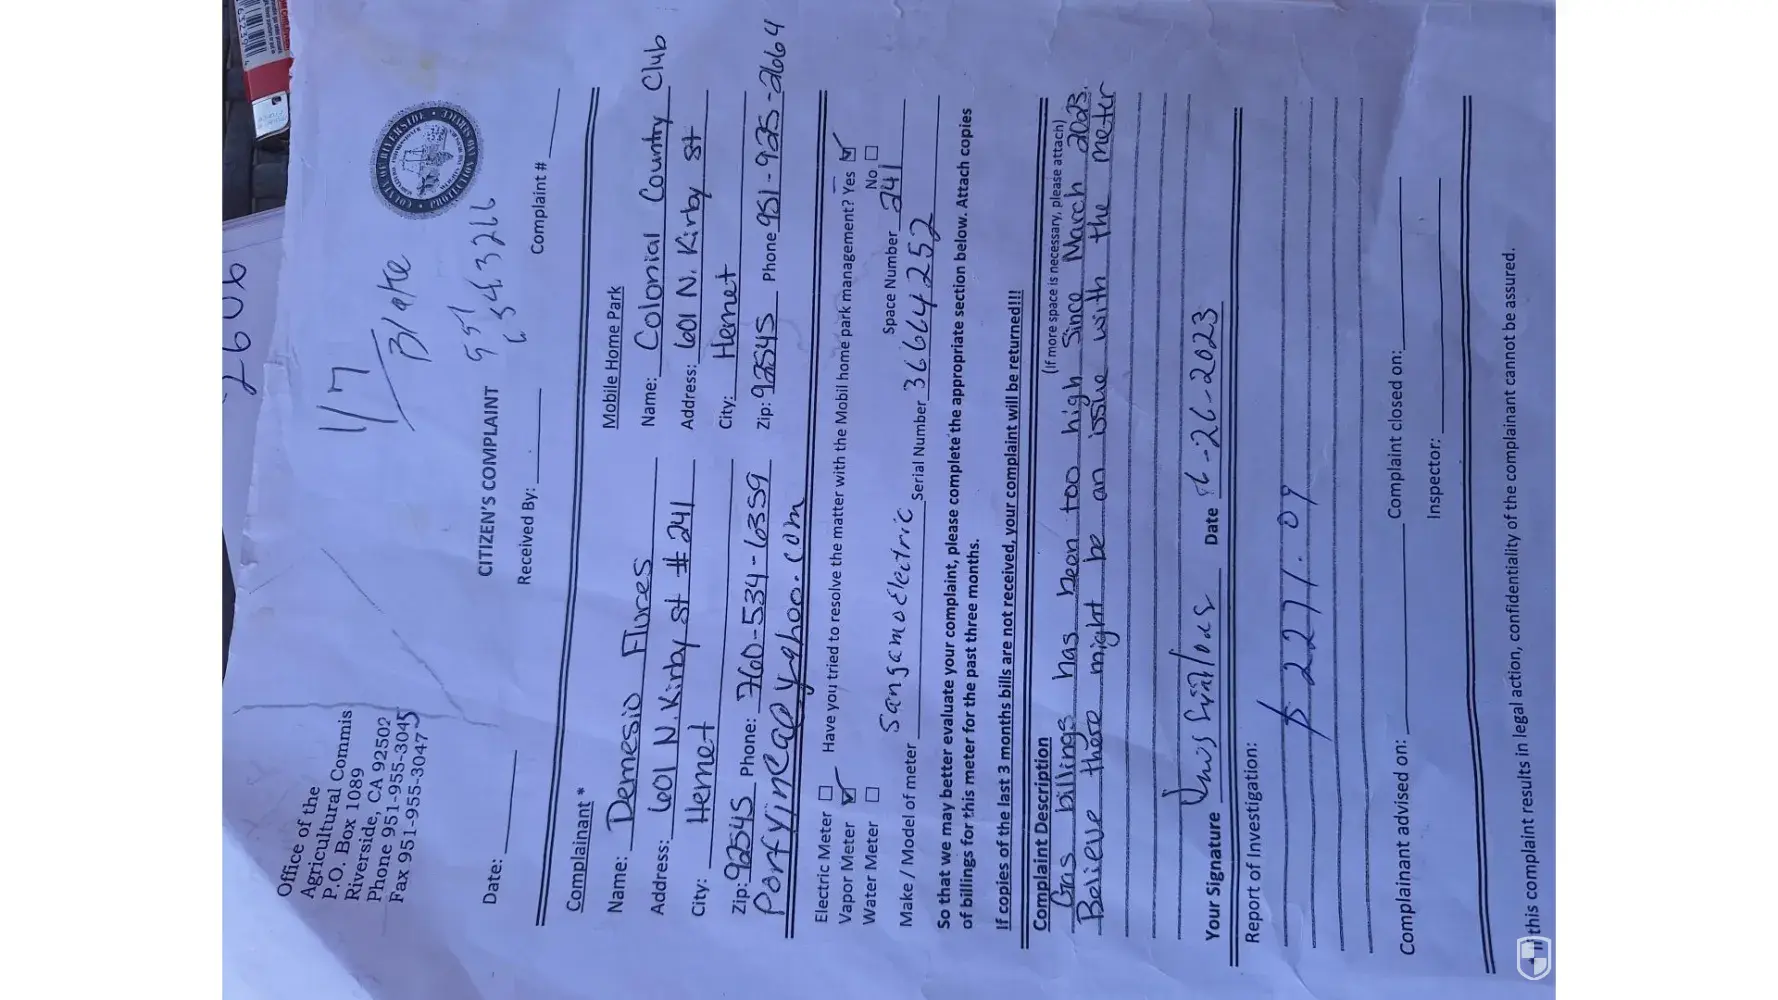 2606
Office of the
Agricultural Commis
P.O. Box 1089
Riverside, CA 92502
Phone 951-955-3045
Fax 951-955-3047
1/7
Blake
951
6343266
COUNTY OF RIVERSIDE
CITIZEN'S COMPLAINT
Date: Received By: Complaint #
Complainant * Mobile Home Park
Name: Demesio Flures Name: Colonial Country Club
Address: 601 N. Kirby st # 241 Address: 601 N. Kirby st
City: Hemet City: Hemet
Zip: 92545 Phone: 760-534-6359 Zip: 92545 Phone 951-925-2664
yahoo.com
Electric Meter Have you tried to resolve the matter with the Mobil home park management? Yes
Vapor Meter No
Water Meter Space Number 241
Make / Model of meter Sangamo Electric Serial Number 36664252
So that we may better evaluate your complaint, please complete the appropriate section below. Attach copies
of billings for this meter for the past three months.
If copies of the last 3 months bills are not received, your complaint will be returned!!!
Complaint Description (If more space is necessary, please attach)
Gas billings has been too high Since March 2023.
Believe there might be an issue with the meter
Your Signature Date 6-26-2023
Report of Investigation:
$ 2271.09
Complainant advised on: Complaint closed on:
Inspector:
* If this complaint results in legal action, confidentiality of the complainant cannot be assured.